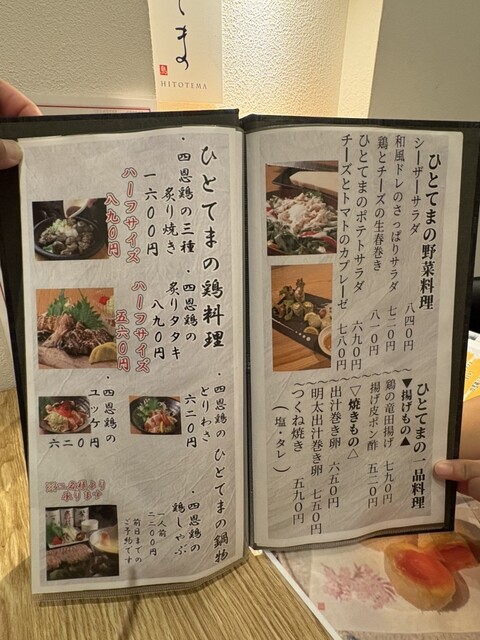 てま
HITOTEMA
ひとてまの野菜料理
シーザーサラダ 八四〇円
和風ドレのさっぱりサラダ 七二〇円
鶏とチーズの生春巻き 八一〇円
ひとてまのポテトサラダ 六九〇円
チーズとトマトのカプレーゼ 七八〇円
ひとてまの一品料理
▼揚げもの▲
鶏の竜田揚げ 七九〇円
揚げ皮ポン酢 五二〇円
▽焼きもの△
出汁巻き卵 六五〇円
明太出汁巻き卵 七五〇円
つくね焼き 五九〇円
(塩・タレ)
ひとてまの鶏料理
・四恩鶏の三種
炙り焼き
一六〇〇円
ハーフサイズ
八九〇円
・四恩鶏の
炙りタタキ
八九〇円
ハーフサイズ
五六〇円
・四恩鶏の
とりわさ
六二〇円
・四恩鶏の
ユッケ
六二〇円
ひとてまの鍋物
・四恩鶏の
鶏しゃぶ
一人前
二二〇〇円
前日までの
ご予約です
※二名様より
承ります